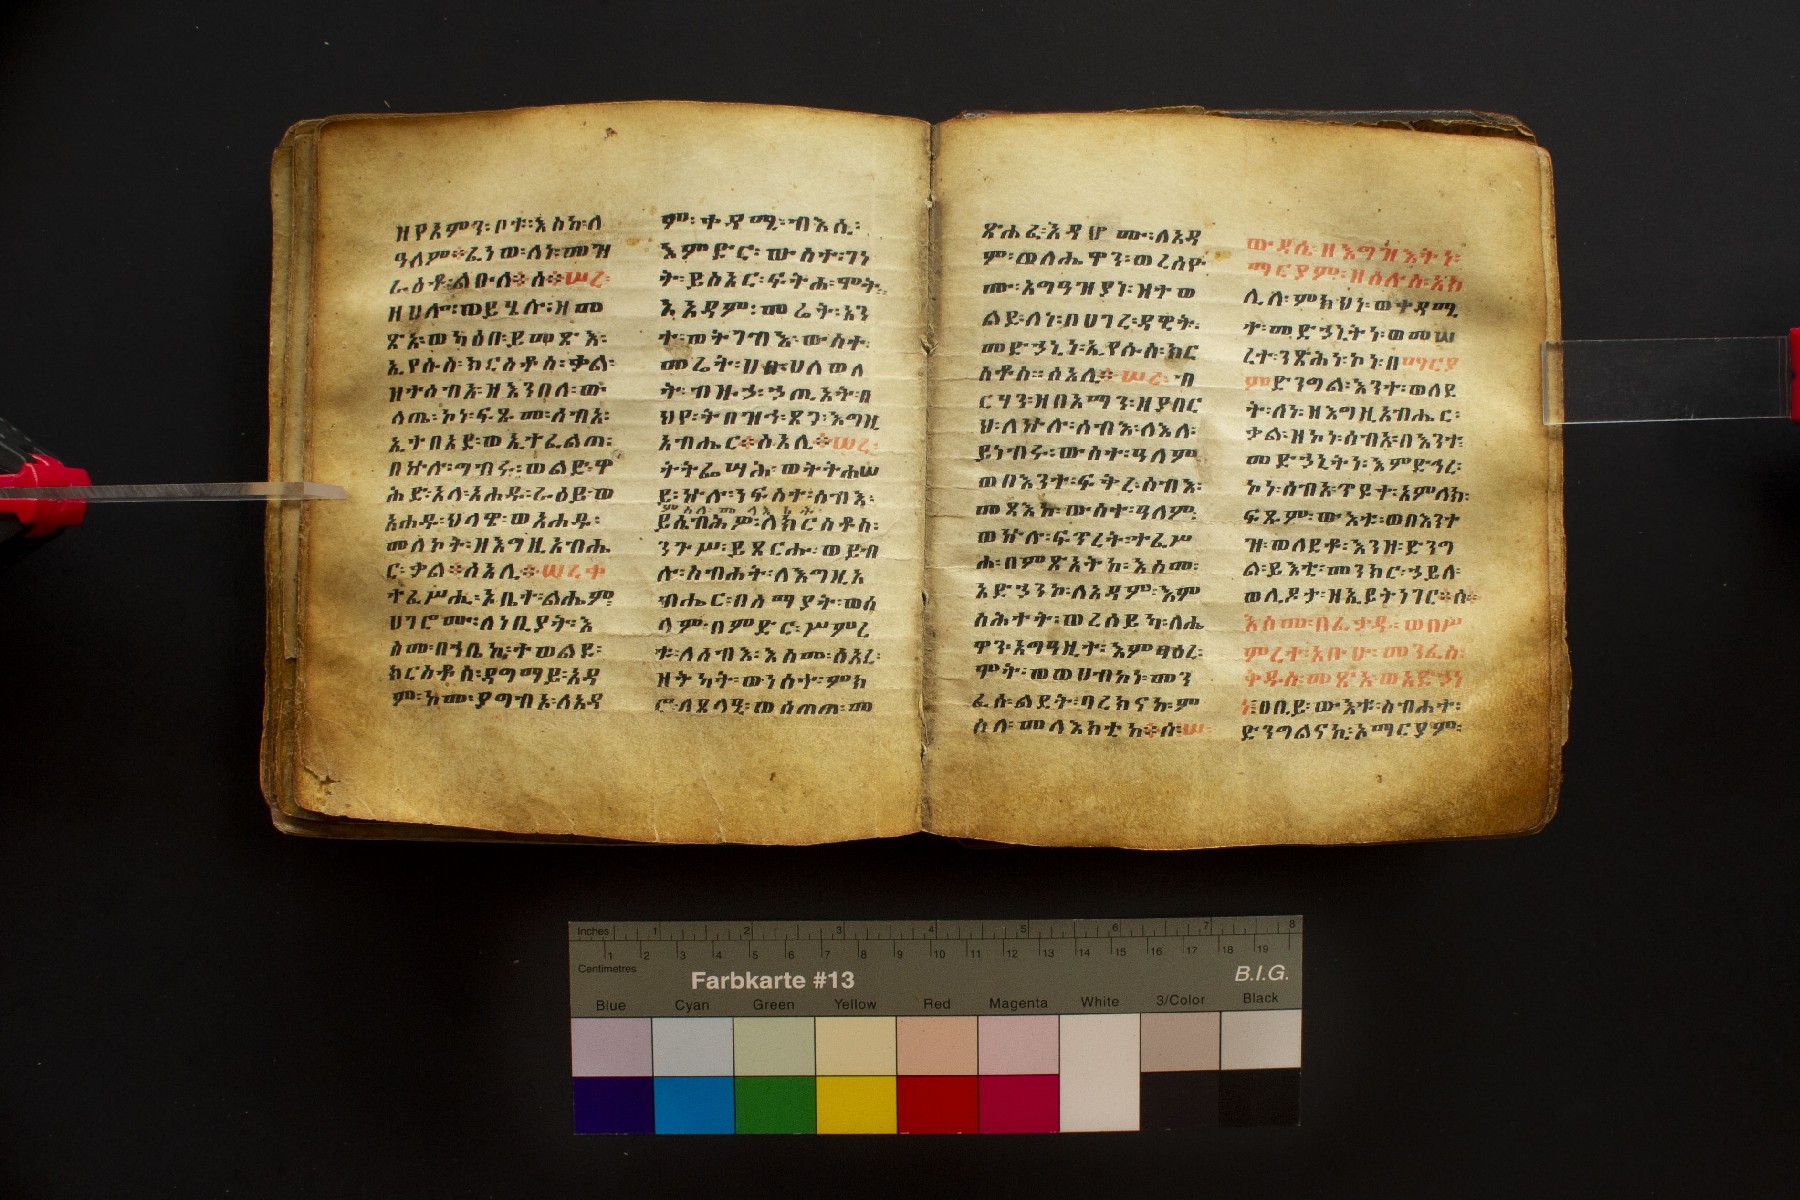 ዘየአምን፡ቦቱ፡እስከ፡ለ
ዓለም፨ፈነወ፡ለነ፡መዝ
ራዕቶ፡ልዑለ፨ሰ፨ሠረ፡
ዘሀሎ፡ወይሄሉ፡ዘመ
ጽአ፡ወካዕበ፡ይመጽእ፡
ኢየሱስ፡ክርስቶስ፡ቃል፡
ዘተሰብአ፡ዘእንበለ፡ው
ላጤ፡ኮነ፡ፍጹመ፡ሰብአ፡
ኢተበአደ፡ወኢተፈልጠ፡
በኵሉ፡ግብሩ፡ወልድ፡ዋ
ሕድ፡አላ፡አሐዱ፡ራዕይ፡ወ
አሐዱ፡ህላዌ፡ወአሐዱ፡
መለኮት፡ዘእግዚአብሔ
ር፡ቃል፨ሰአሊ፨ሠረቀ
ተፈሥሒ፡ኦቤተ፡ልሔም፡
ሀገሮሙ፡ለነቢያት፡እ
ስመ፡በኀቤኪ፡ተወልደ፡
ክርስቶስ፡ዳግማይ፡አዳ
ም፡ከመ፡ያግብኦ፡ለአዳ
ም፡ቀዳሚ፡ብእሲ፡
እምድር፡ውስተ፡ገነ
ት፡ይስአር፡ፍትሐ፡ሞት፡
እአዳም፡መሬት፡አን
ተ፡ወትገብእ፡ውስተ፡
መሬት፡ሀሎ፡ሀለወለ
ት፡ብዙኃ፡ኃጢአት፡በ
ህየ፡ትበዝኅ፡ጸጋ፡እግዚ
አብሔር፨ሰአሊ፨ሠረ፡
ትትፌሣሕ፡ወትትሐሠ
ይ፡ኵሉ፡ነፍስተ፡ሰብእ፡
ምስለ፡መላእክት
ይሴብሕዎ፡ለክርስቶስ፡
ንጉሥ፡ይጸርሑ፡ወይብ
ሉ፡ስብሐት፡ለእግዚአ
ብሔር፡በሰማያት፡ወሰ
ላም፡በምድር፡ሥምረ
ቱ፡ለሰብእ፡እስመ፡ሰአረ፡
ዘትካት፡ወነሰተ፡ምክ
ሮ፡ለጸላዒ፡ወሰጠጠ፡መ
ጽሐፈ፡እዳሆሙ፡ለአዳ
ም፡ወለሔዋን፡ወረሰዮ
ሙ፡አግዓዝያነ፡ዝተወ
ልደ፡ለነ፡በሀገረ፡ዳዊት፡
መድኃኒነ፡ኢየሱስ፡ክር
ስቶስ፡፡ሰአሊ፨ሠረ፡ብ
ርሃን፡ዘበአማን፡ዘያበር
ህ፡ለኵሉ፡ሰብእ፡ለእለ፡
ይነብሩ፡ውስተ፡ዓለም
ወበእንተ፡ፍቅረ፡ሰብእ፡
መጻእከ፡ውስተ፡ዓለም፡
ወኵሉ፡ፍጥረት፡ተፈሥ
ሐ፡በምጽአትከ፡እስመ፡
አድኃንኮ፡ለአዳም፡እም
ስሕተት፡ወረሰይካ፡ለሔ
ዋን፡አግዓዚተ፡እምፃዕረ፡
ሞት፡ወወሀብከነ፡መን
ፈሰ፡ልደት፡ባረክናከ፡ም
ስለ፡መላእክቲከ፨ሰ፡ሠ፡
ውዳሴ፡ዘእግዝእትነ፡
ማርያም፡ዘሰሉስ፡አክ
ሊለ፡ምክህነ፡ወቀዳሚ
ተ፡መድኃኒትነ፡ወመሠ
ረተ፡ንጽሕነ፡ኮነ፡በማርያ
ም፡ድንግል፡እንተ፡ወለደ
ት፡ለነ፡ዘእግዚአብሔር፡
ቃል፡ዘኮነ፡ሰብአ፡በእንተ፡
መድኃኒትነ፡እምድኅረ፡
ኮነ፡ሰብአ፡ጥዩቀ፡አምላክ፡
ፍጹም፡ውእቱ፡ወበእንተ
ዝ፡ወለደቶ፡እንዘ፡ድንግ
ል፡ይእቲ፡መንክር፡ኃይለ፡
ወሊዶታ፡ዘኢይትነገር፨ሰ፨
እስመ፡በፈቃዱ፡ወበሥ
ምረተ፡አቡሁ፡መንፈስ፡
ቅዱስ፡መጽአ፡ወአድኃነ
ነ፡ዐቢይ፡ውእቱ፡ስብሐተ፡
ድንግልናኪ፡ኦማርያም፡
Inches 1 2 3 4 5 6 7 8
1 2 3 4 5 6 7 8 9 10 11 12 13 14 15 16 17 18 19
Centimetres
Farbkarte #13 B.I.G.
Blue Cyan Green Yellow Red Magenta White 3/Color Black